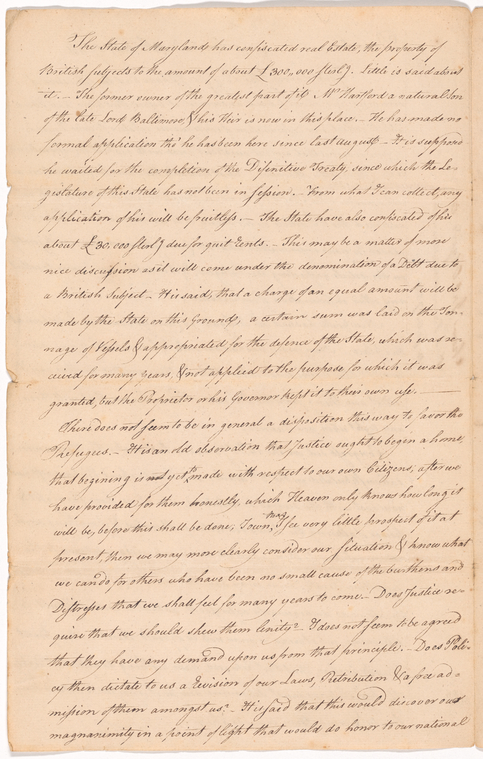 The State of Maryland has confiscated real Estate, the property of
British subjects to the amount of about £300,000 sterlg. Little is said about
it. — The former owner of the greatest part of it Mr Harford a natural Son
of the late Lord Baltimore, & his Heir is now in this place. — He has made no
formal application tho' he has been here since last august — It is supposed
he waited for the completion of the Difenitive Treaty, since which the Le-
gislature of this State has not been in session. — From what I can collect, any
application of his will be fruitless. — The State have also confiscated of his
about £30,000 sterlg due for quit Rents. — This may be a matter of more
nice discussion as it will come under the denomination of a Debt due to
a British Subject — It is said, that a charge of an equal amount will be
made by the State on this Ground, a certain sum was laid on the Ton-
nage of Vessels & appropriated for the defence of the State, which was re-
ceived for many years, & not applied to the purpose for which it was
granted, but the Proprietor or his Governor kept it to their own use. —
There does not seem to be in general a disposition this way to favor the
Refugees. — It is an old observation that Justice ought to begin a home,
that begining is not yet made with respect to our own Citizens, after we
have provided for them honestly, which Heaven only knows how long it
will be, before this shall be done, I own, I see very little prospect of it at
present, then we may more clearly consider our situation & know what
we can do for others who have been no small cause of the burthens and
Distresses that we shall feel for many years to come. — Does Justice re-
quire that we should shew them lenity? — I does not seem to be agreed
that they have any demand upon us from that principle. — Does Poli-
cy then dictate to us a Revision of our Laws, Retribution & a free ad-
mission of them amongst us? — It is said that this would discover our
magnanimity in a point of light that would do honor to our national